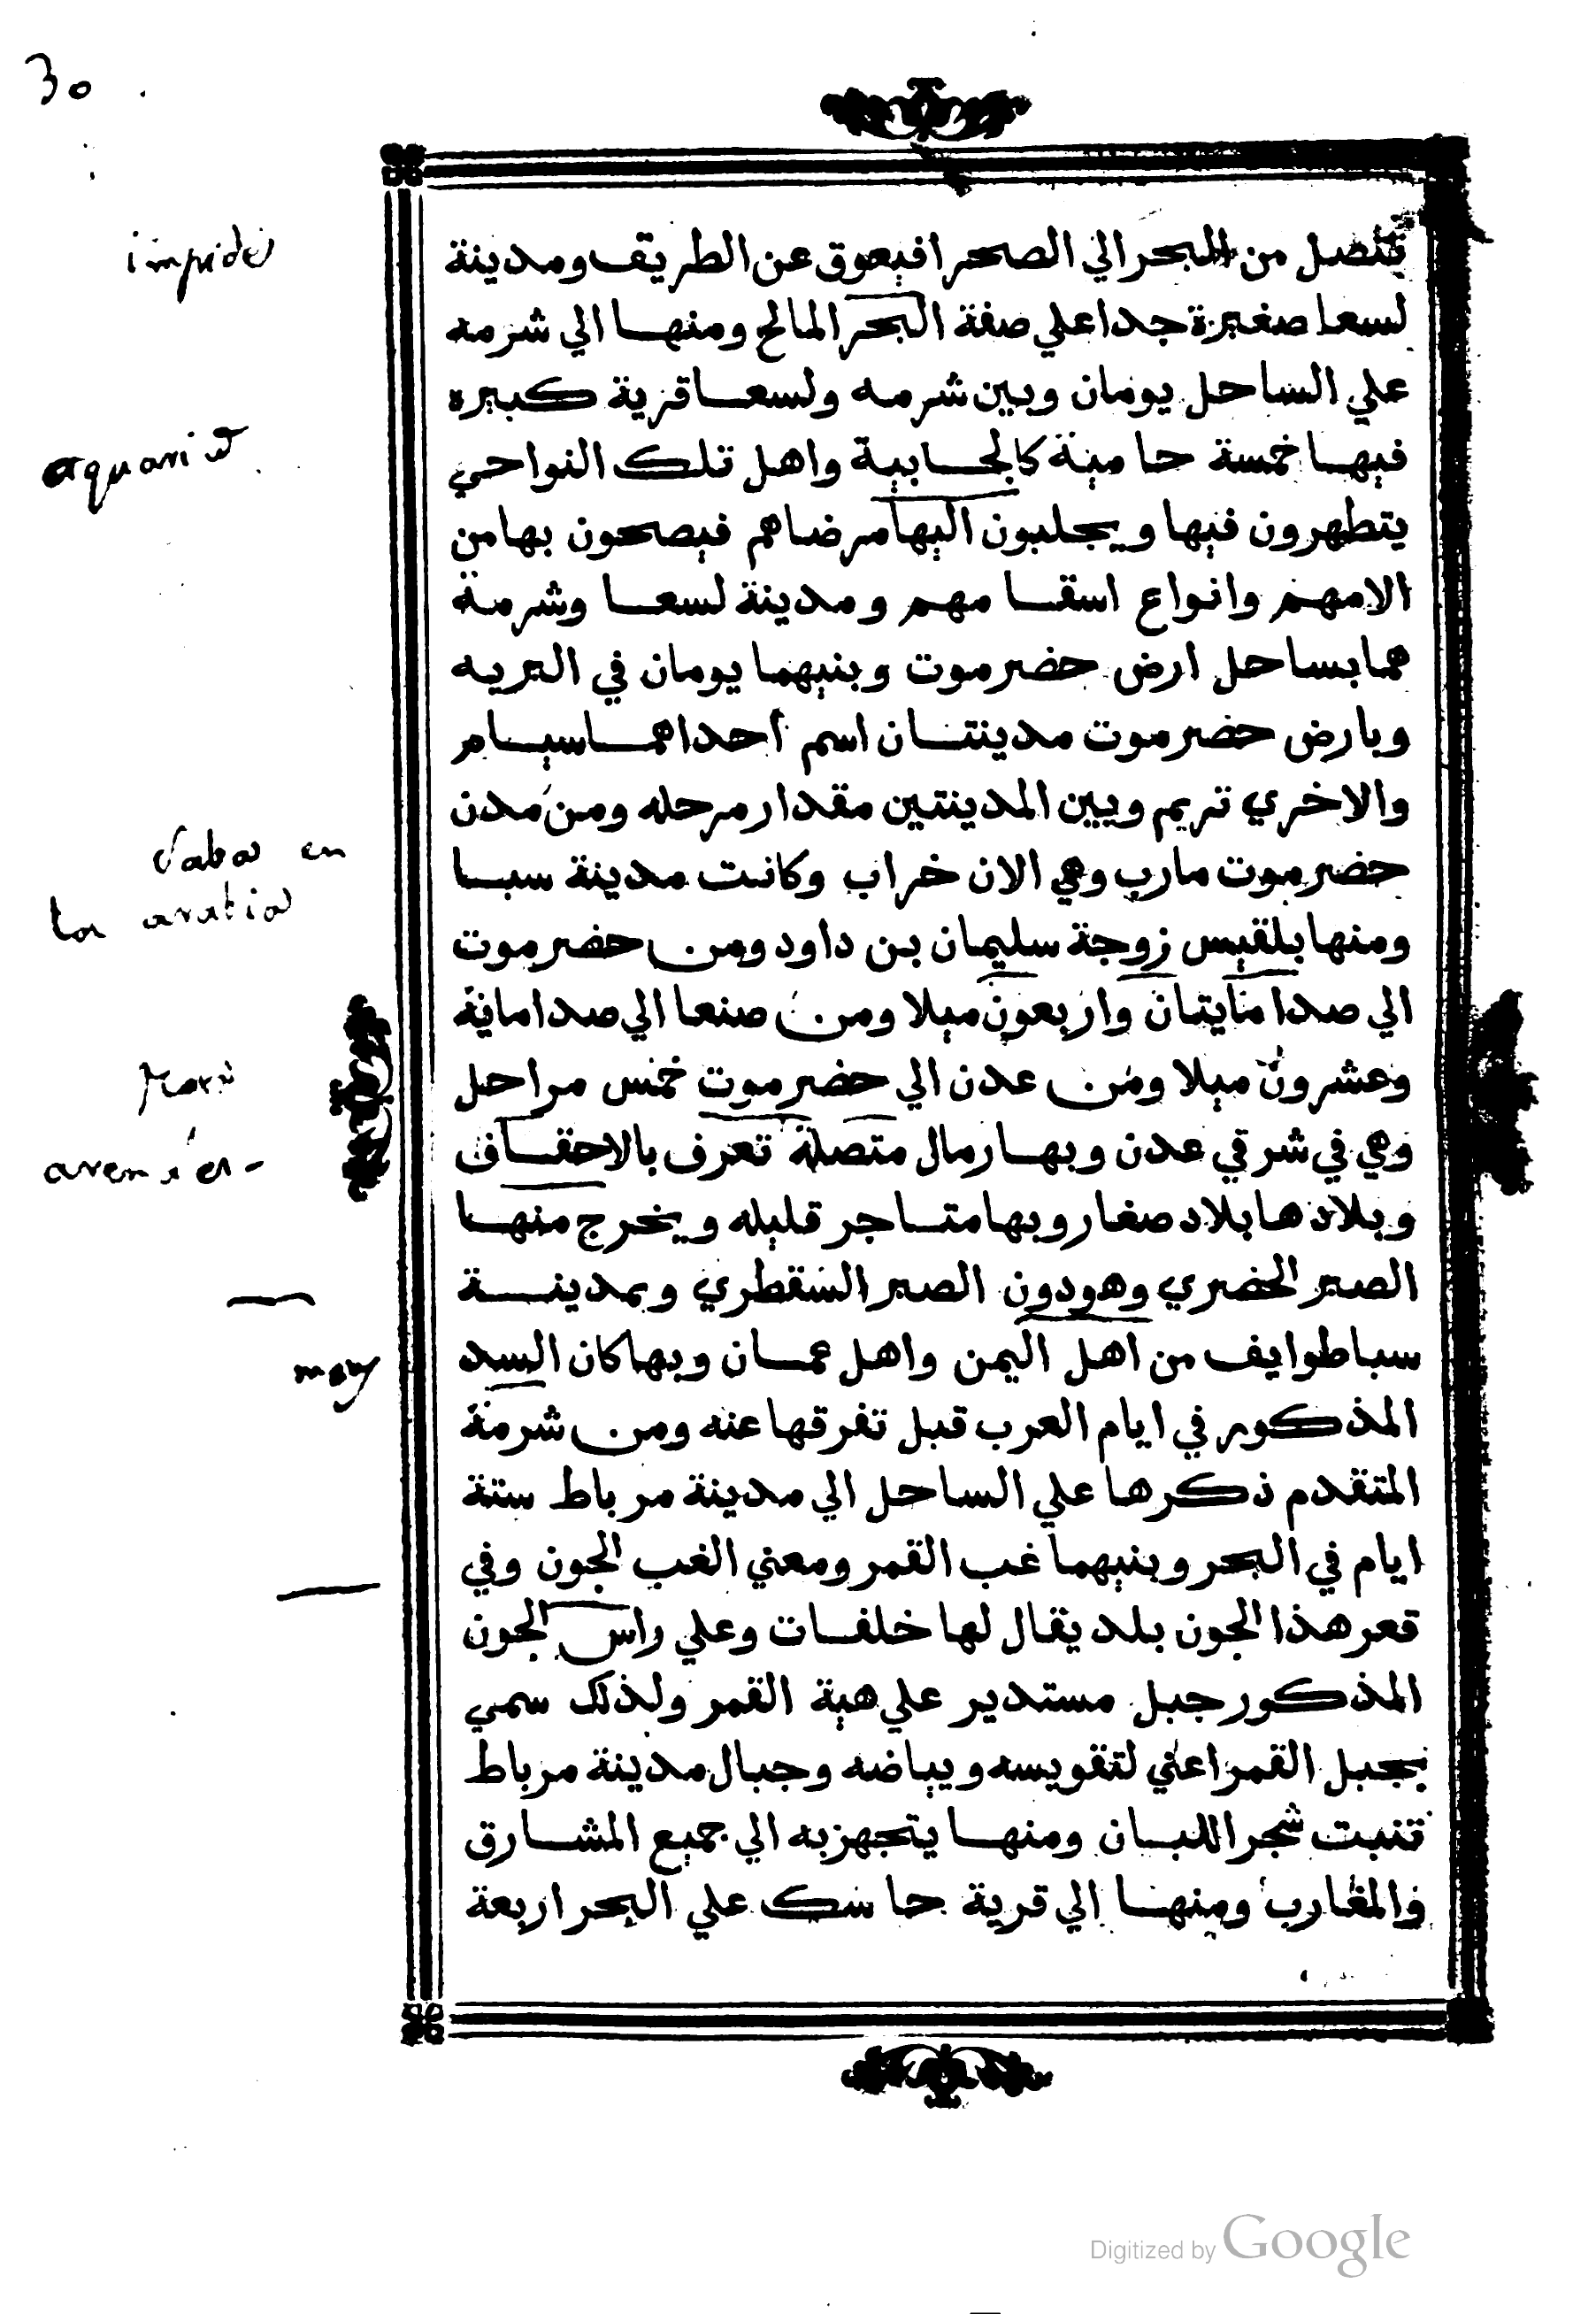 30
تتصل من البحر الي الصحرا فيعوق عن الطريق ومدينة
impide
لسعا صغيرة جدا علي صفة البحر المالح ومنها الي شرمه
علي الساحل يومان وبين شرمه ولسعا قرية كبيره
فيها خمسة حامية كالجابية واهل تلك النواحي
يتطهرون فيها ويجلبون اليها مرضاهم فيصحون بها من
الامهم وانواع اسقامهم ومدينة لسعا وشرمة
هما بساحل ارض حضرموت وبينهما يومان في البريه
وبارض حضرموت مدينتان اسم احداهما سيام
والاخري تريم وبين المدينتين مقدار مرحله ومن مدن
حضرموت مارب وهي الان خراب وكانت مدينة سبا
Saba en
la arabia
ومنها بلقيس زوجة سليمان بن داود ومن حضرموت
الي صدا مايتان واربعون ميلا ومن صنعا الي صدا ماية
وعشرون ميلا ومن عدن الي حضرموت خمس مراحل
وهي في شرقي عدن وبها رمال متصلة تعرف بالاحقاف
وبلادها بلاد صغار وبها متاجر قليله ويخرج منها
الصبر الحضري وهو دون الصبر السقطري وبمدينة
سبا طوايف من اهل اليمن واهل عمان وبها كان السد
المذكور في ايام العرب قبل تفرقها عنه ومن شرمة
المتقدم ذكرها علي الساحل الي مدينة مرباط ستة
ايام في البحر وبينهما غب القمر ومعني الغب الجون وفي
قعر هذا الجون بلد يقال لها خلفات وعلي راس الجون
المذكور جبل مستدير علي هية القمر ولذلك سمي
بجبل القمر اعني لتقويسه وبياضه وجبال مدينة مرباط
تنبت شجر اللبان ومنها يتجهز به الي جميع المشارق
والمغارب ومنها الي قرية حاسك علي البحر اربعة
Digitized by Google